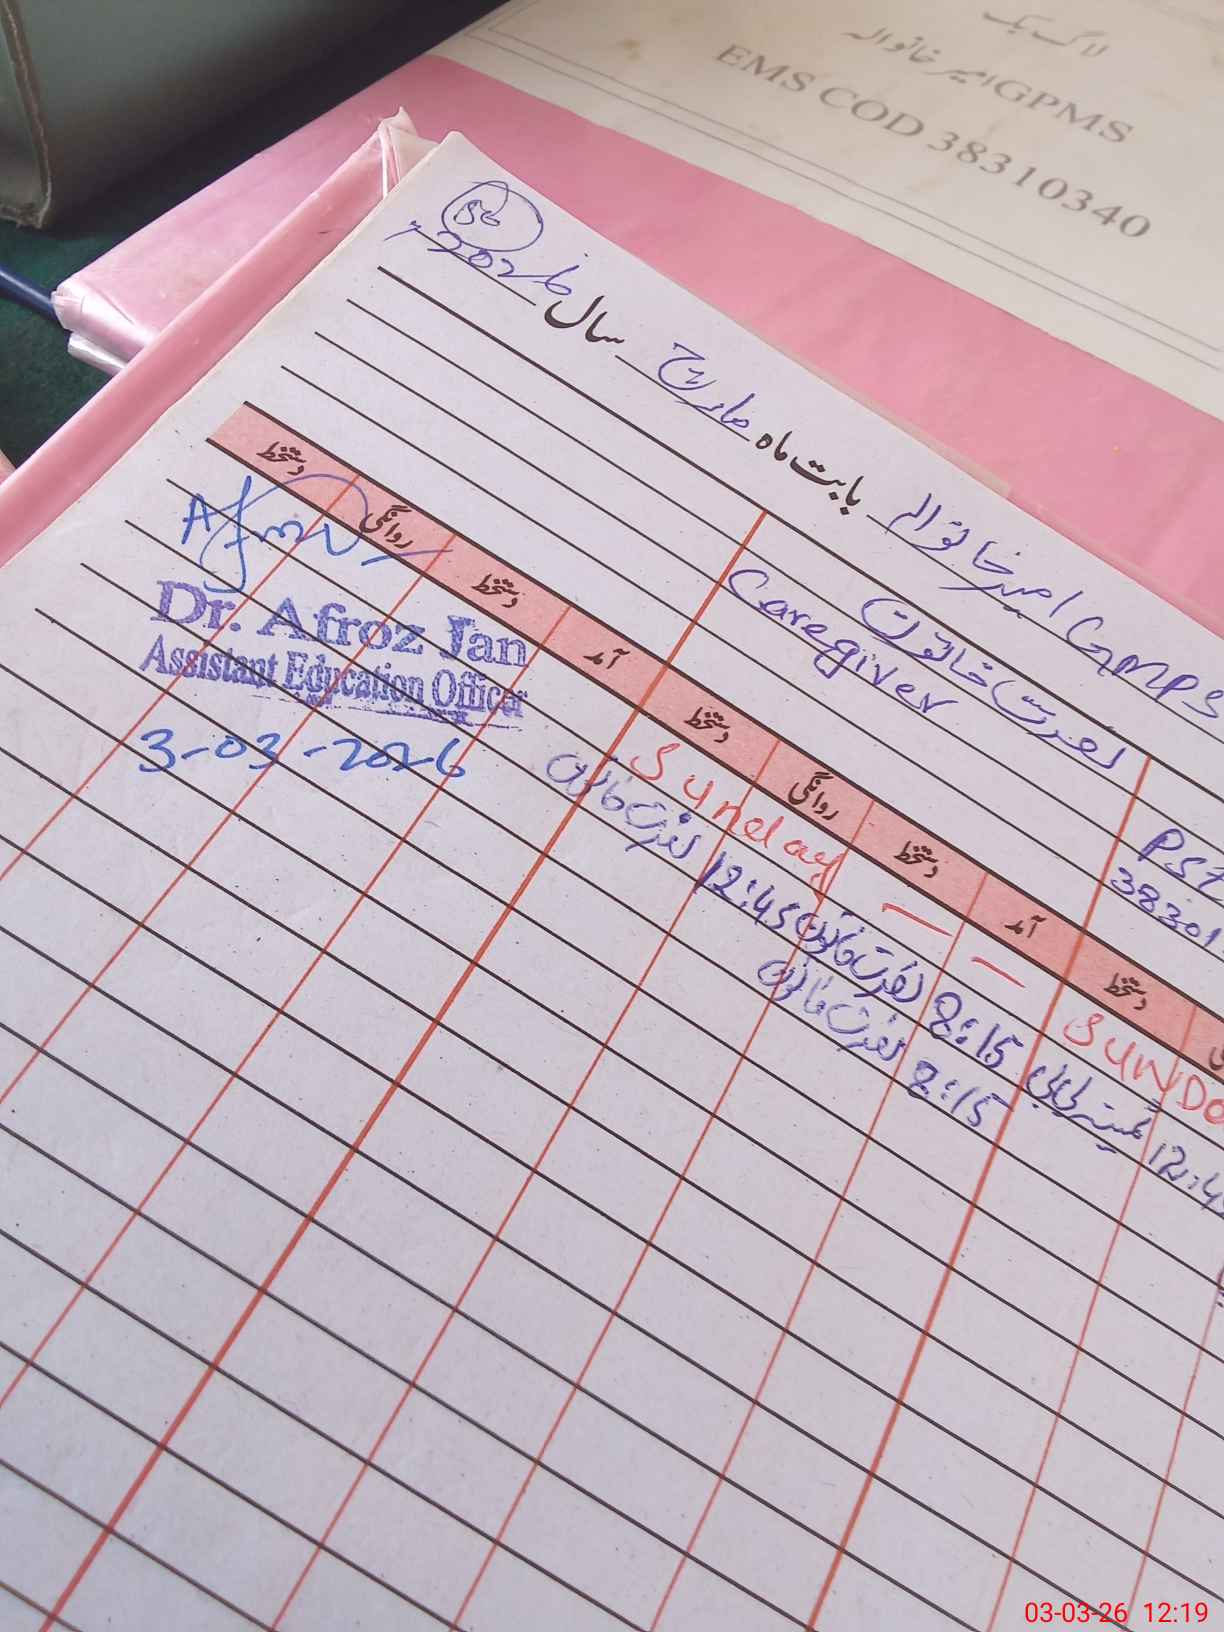 لاگ بک
GPMS امیر خاتوالہ
EMS COD 38310340
56
2026
GMPS امیر خاتوالہ بابت ماہ مارچ سال
نصرت خاتون
Caregiver
PST
38301
دستخط آمد دستخط روانگی دستخط آمد دستخط روانگی دستخط
SUNDa
Sunday
8:15 نصرت خاتون 12:45 نصرت خاتون
12:4
8:15 نصرت خاتون
Afroz
Dr. Afroz Jan
Assistant Education Officer
3-03-2026
03-03-26 12:19